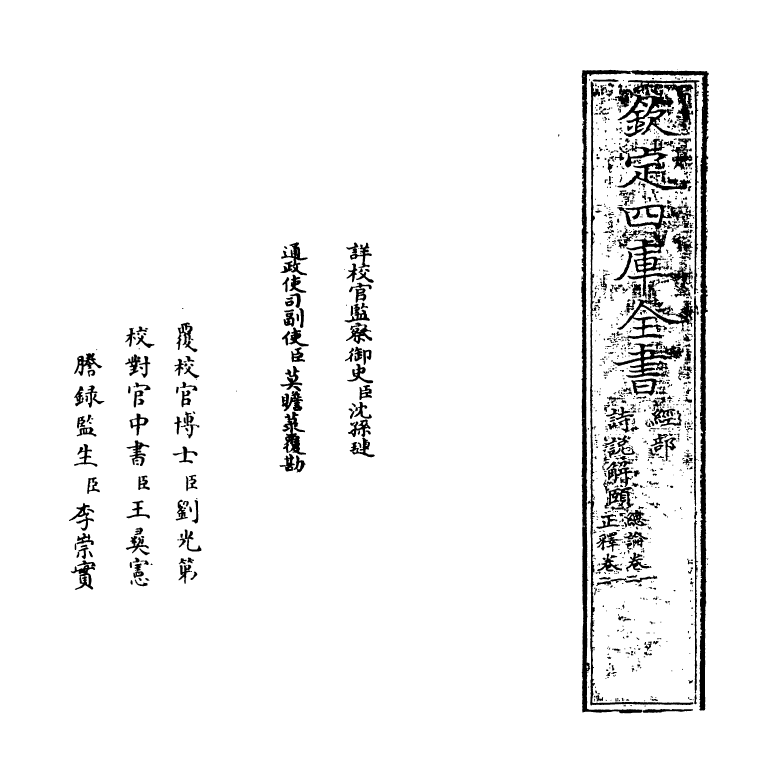 欽定四庫全書
經部
詩說解頤
總論卷二
正釋卷二
詳校官監察御史臣沈孫璉
通政使司副使臣莫瞻菉覆勘
覆校官博士臣劉光第
校對官中書臣王㷆憲
謄録監生臣李崇實